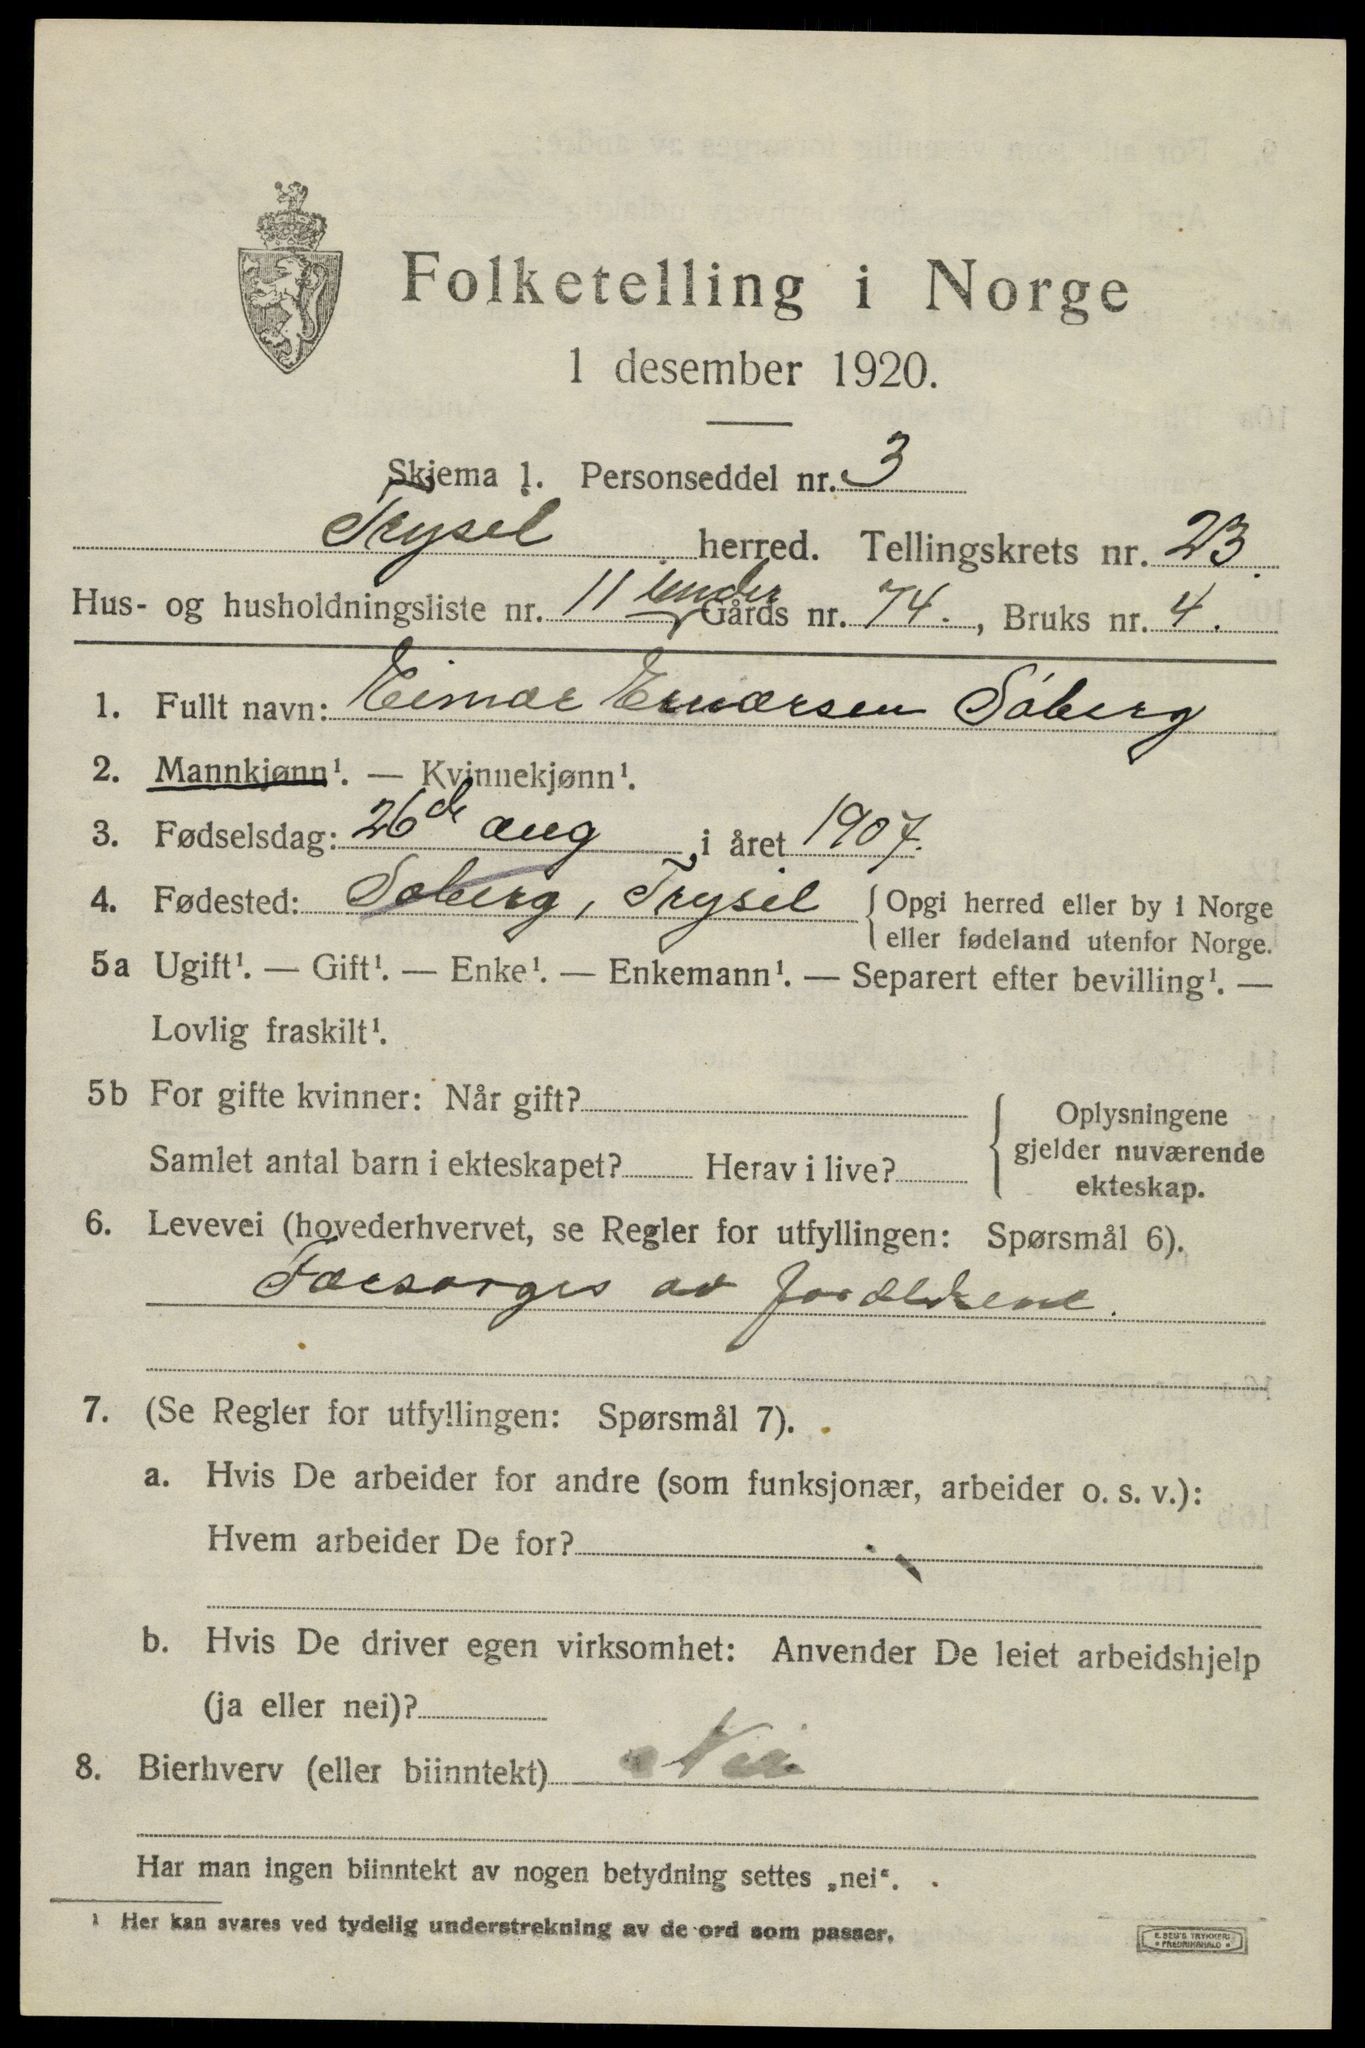 Folketelling i Norge
1 desember 1920.
Skjema 1. Personseddel nr. 3
Trysil herred. Tellingskrets nr. 23.
Hus- og husholdningsliste nr. 11 under Gårds nr. 74. , Bruks nr. 4.
1. Fullt navn: Eimar Enarsen Söberg
2. Mannkjønn¹. — Kvinnekjønn¹.
3. Fødselsdag: 26de aug , i året 1907.
4. Fødested: Söberg, Trysil { Opgi herred eller by i Norge
eller fødeland utenfor Norge.
5a Ugift¹. — Gift¹. — Enke¹. — Enkemann¹. — Separert efter bevilling¹. —
Lovlig fraskilt¹.
5b For gifte kvinner: Når gift?
Samlet antal barn i ekteskapet? Herav i live?
{ Oplysningene
gjelder nuværende
ekteskap.
6. Levevei (hovederhvervet, se Regler for utfyllingen: Spørsmål 6).
Forsorges av foreldrene.
7. (Se Regler for utfyllingen: Spørsmål 7).
a. Hvis De arbeider for andre (som funksjonær, arbeider o. s. v.):
Hvem arbeider De for?
b. Hvis De driver egen virksomhet: Anvender De leiet arbeidshjelp
(ja eller nei)?
8. Bierhverv (eller biinntekt) Nei
Har man ingen biinntekt av nogen betydning settes „nei“.
¹ Her kan svares ved tydelig understrekning av de ord som passer.